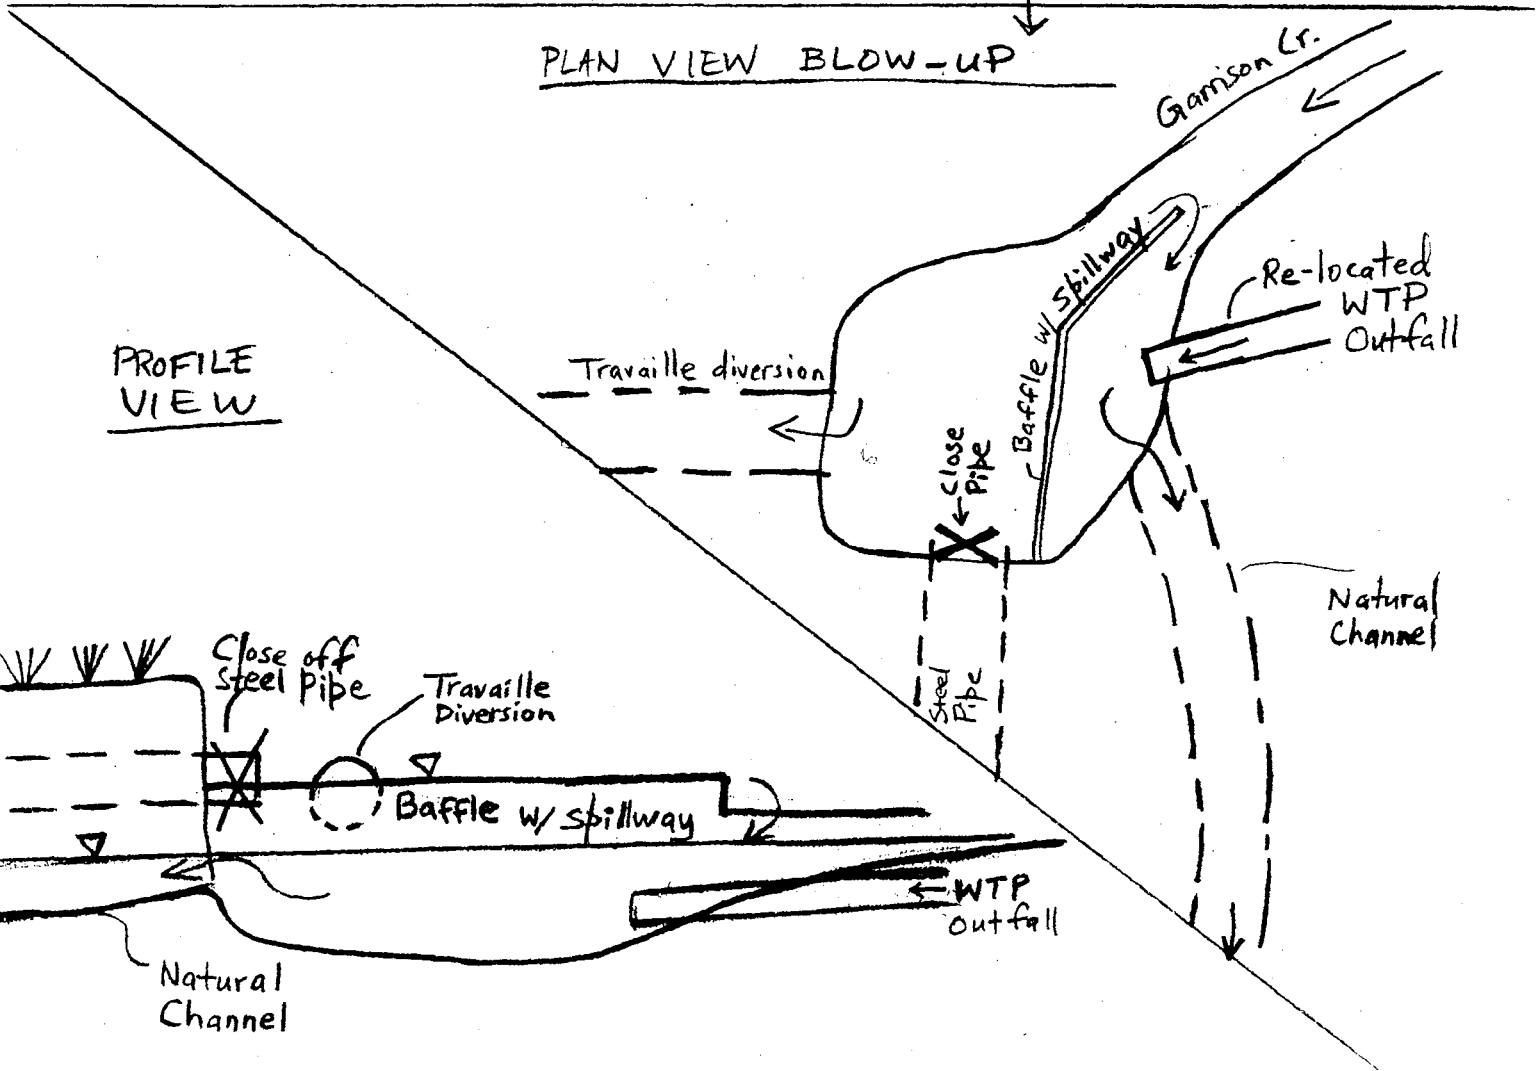 PLAN VIEW BLOW-UP
Garrison Cr.
Re-located
WTP
Outfall
Baffle w/ Spillway
Travaille diversion
Close
Pipe
Steel
Pipe
Natural
Channel
PROFILE
VIEW
Close off
Steel Pipe
Travaille
Diversion
Baffle w/ Spillway
WTP
Outfall
Natural
Channel